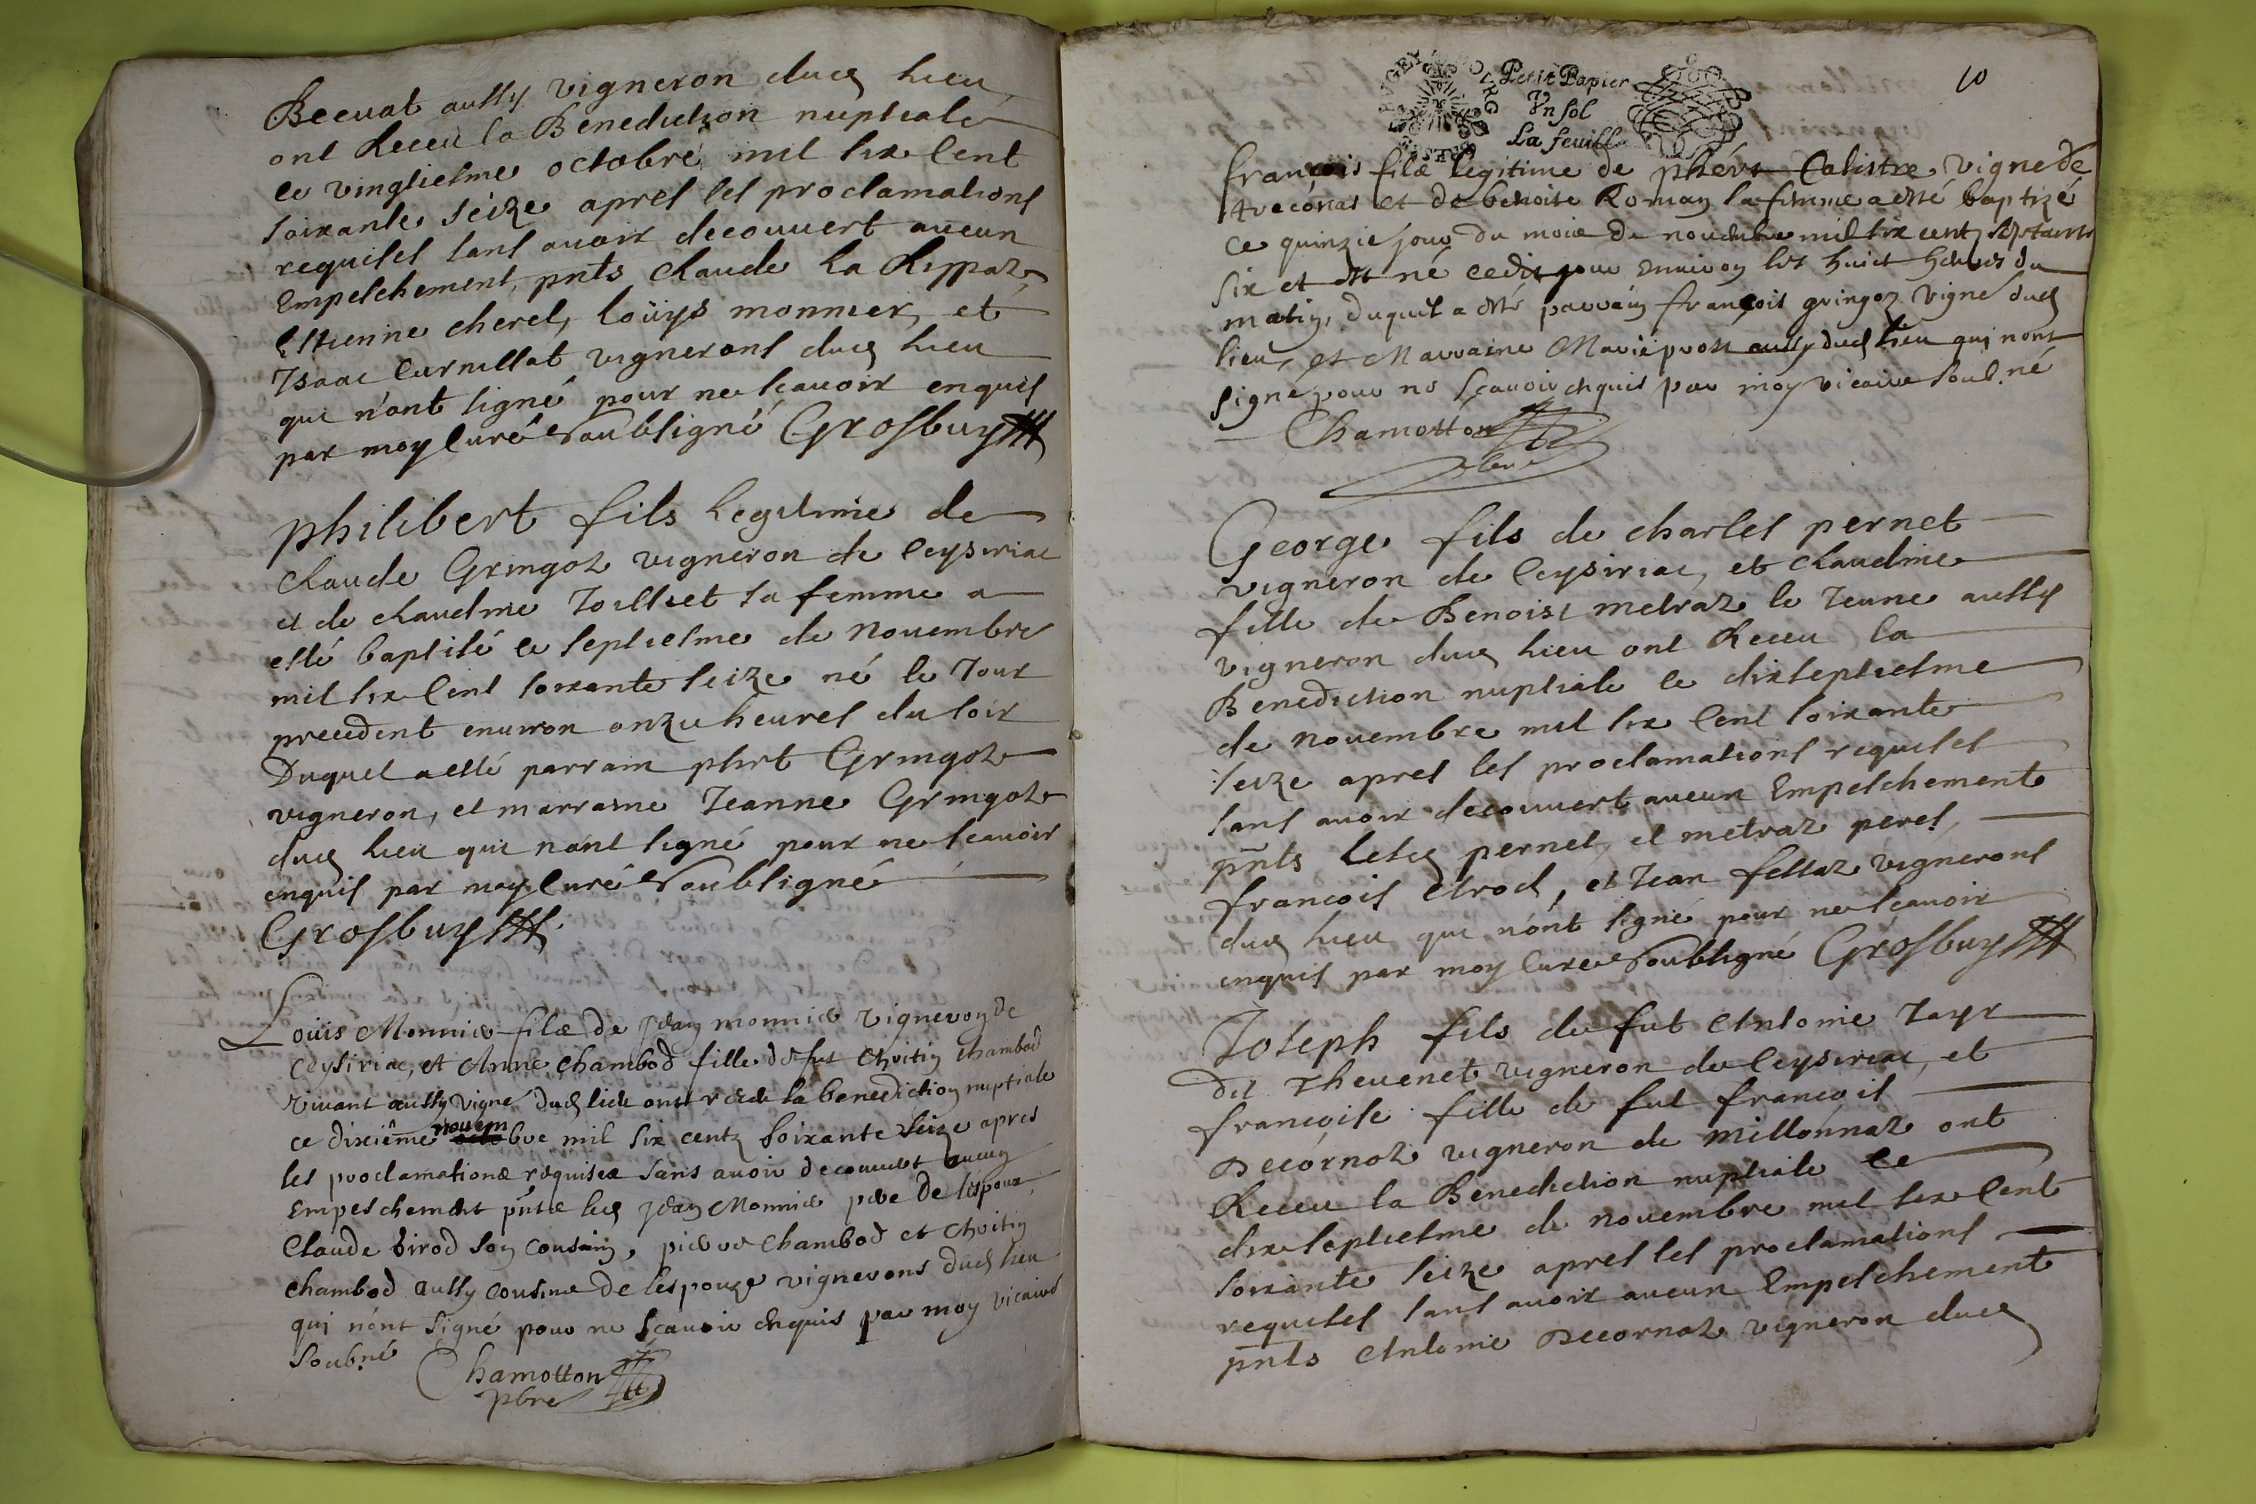 Becuat aussy vigneron dud lieu
ont Receu la Benediction nuptiale
ce vingtiesme octobre mil six Cent
soixante seize apres les proclamations
requises sans avoir decouuert aucun
Empeschement, pnts Claude La
Estienne cherel, loüys monnier, et
Isaac Curnillat vignerons dud lieu
qui n'ont signé pour ne scauoir enquis
par moy Curé Soubsigné Grosbuy
philibert fils Legitime de
Claude Gringoz vigneron de Ceysiriac
et de claudine sa femme a
esté baptisé le septiesme de Nouembre
mil six Cent soixante seize né le Jour
precedent enuiron onze heures du soir
Duquel a esté parrain phrt Gringoz
vigneron, et marraine Jeanne Gringoz
dud lieu qui n'ont signé pour ne scauoir
enquis par moy Curé Soubsigné
Grosbuy
Louis Monnier fils de Jean monnier Vigneron de
Ceysiriac, et Anne Chambod fille de fut Chambod
viuant aussy vigne dud lieu ont receu la benediction nuptiale
ce dixiême nouembre mil six centz soixante seize apres
les proclamations requises sans auoir decouuert aucun
Empeschement pnts led Jean Monnier pere de l'espoux
Claude birod son cousin, pierre Chambod et
Chambod aussy cousins de lespouze vignerons dud lieu
qui n'ont signé pour ne scauoir enquis par moy vicaire
soubné Chamotton
pbre
10
Petit Papier
Vn sol
La feuille
françois fils legitime de Calistre vigne de
et de benoite Roman sa femme a esté baptizé
ce quinzie jour du mois de nouembre mil six centz septante
six et est né cedit jour enuiron les huict heures du
matin, duquel a esté parrain françois gringoz vigne dud
lieu, et Marraine Marie prost aussy dud lieu qui nont
signé pour ne scauoir enquis par moy vicaire soub.né
Chamotton
George fils de charles pernet
vigneron de Ceysiriac, et claudine
fille de Benoist metraz le Jeune aussy
vigneron dud lieu ont Receu la
Benediction nuptiale ce dixseptiesme
de nouembre mil six Cent soixante
seize apres les proclamations requises
sans auoir decouuert aucun Empeschement
pnts lesd pernet, et metraz peres,
francois, et Jean fellaz vignerons
dud lieu qui n'ont signé pour ne scauoir
enquis par moy Curé Soubsigné Grosbuy
Joseph fils de fut Antoine Tayr
dit Theuenet vigneron de Ceysiriac, et
francoise fille de fut francois
Decornoz vigneron de Millonnaz ont
Receu la Benediction nuptiale le
dixseptiesme de nouembre mil six Cent
soixante seize apres les proclamations
requises sans auoir aucun Empeschement
pnts Antoine Decornoz vigneron dud